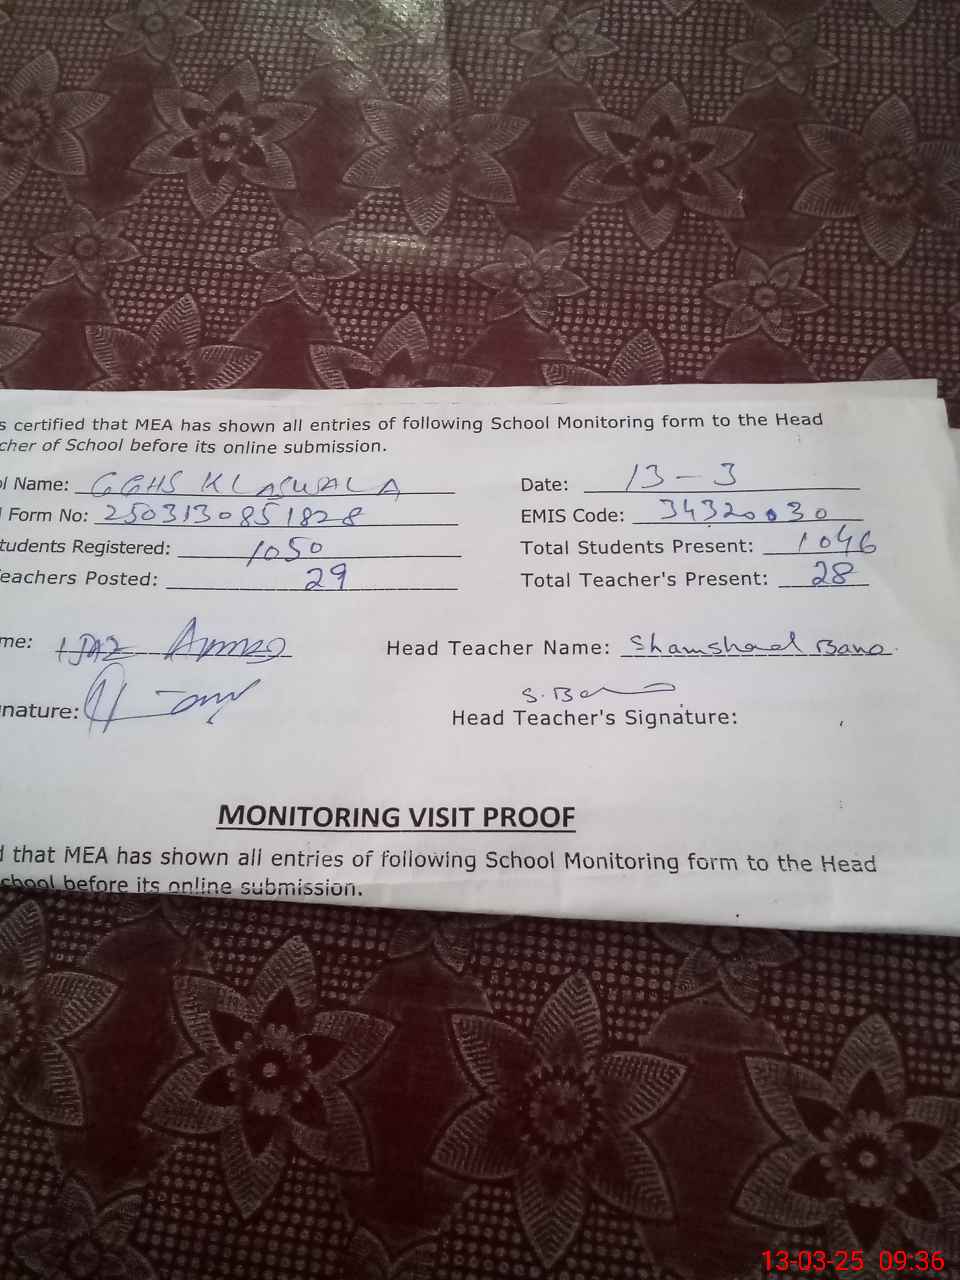 s certified that MEA has shown all entries of following School Monitoring form to the Head
cher of School before its online submission.
l Name: GGHS KLASWALA Date: 13-3
Form No: 2503130851828 EMIS Code: 34320030
tudents Registered: 1050 Total Students Present: 1046
eachers Posted: 29 Total Teacher's Present: 28
me: IJAZ Ahmed Head Teacher Name: Shamshad Bano
nature: S. Ba
Head Teacher's Signature:
MONITORING VISIT PROOF
d that MEA has shown all entries of following School Monitoring form to the Head
school before its online submission.
13-03-25 09:36